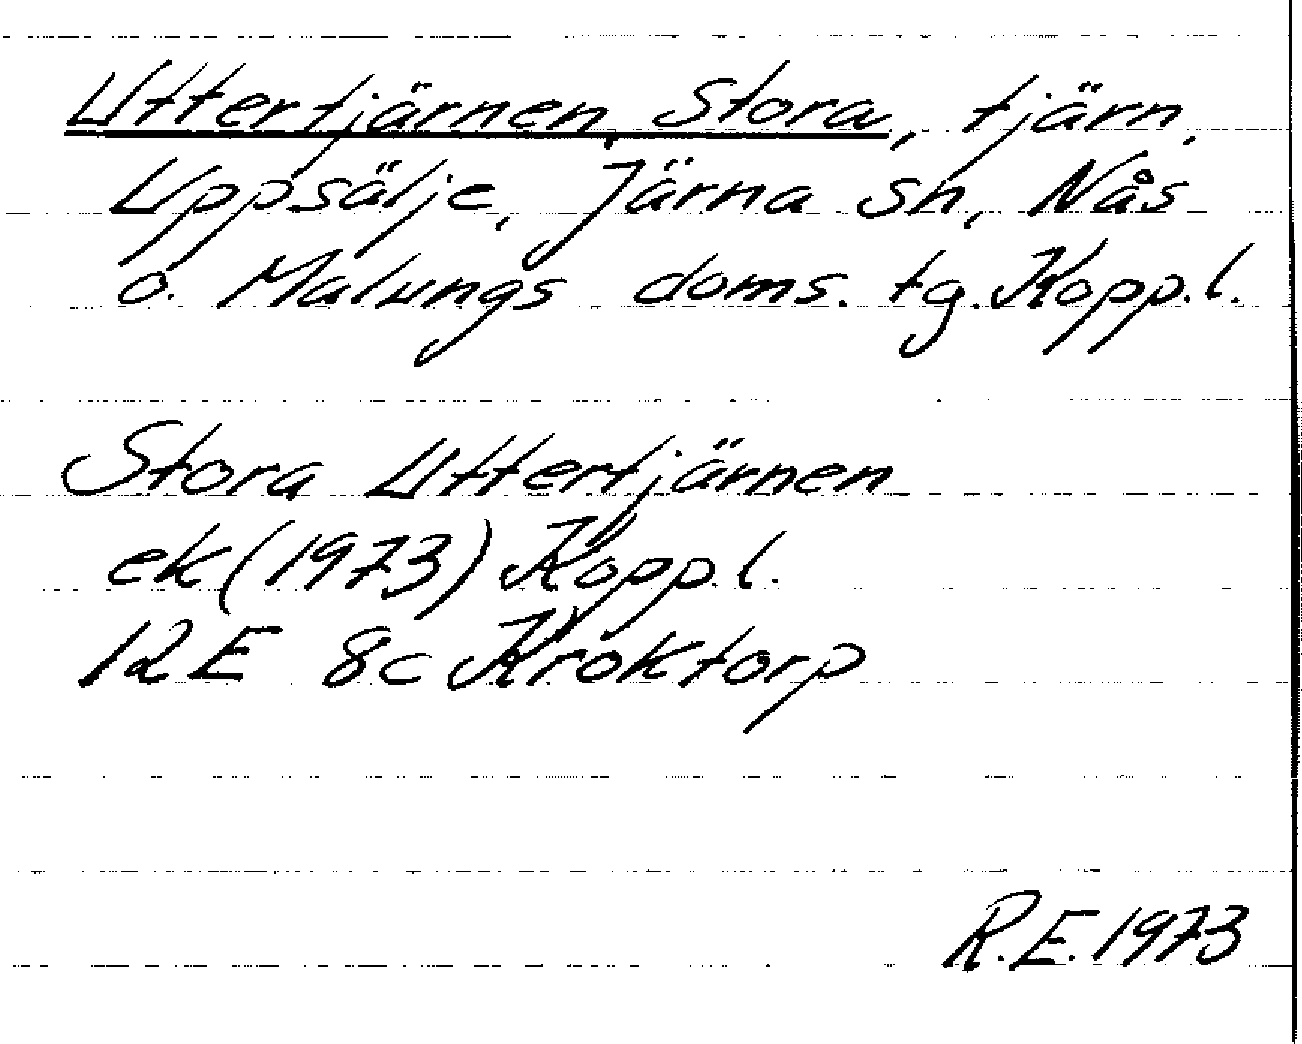 Uttertjärnen, Stora, tjärn,
Uppsälje, Järna sn, Nås
o. Malungs doms. tg. Kopp.l.
Stora Uttertjärnen
ek (1973) Kopp.l.
12E 8c Kroktorp
R.E. 1973